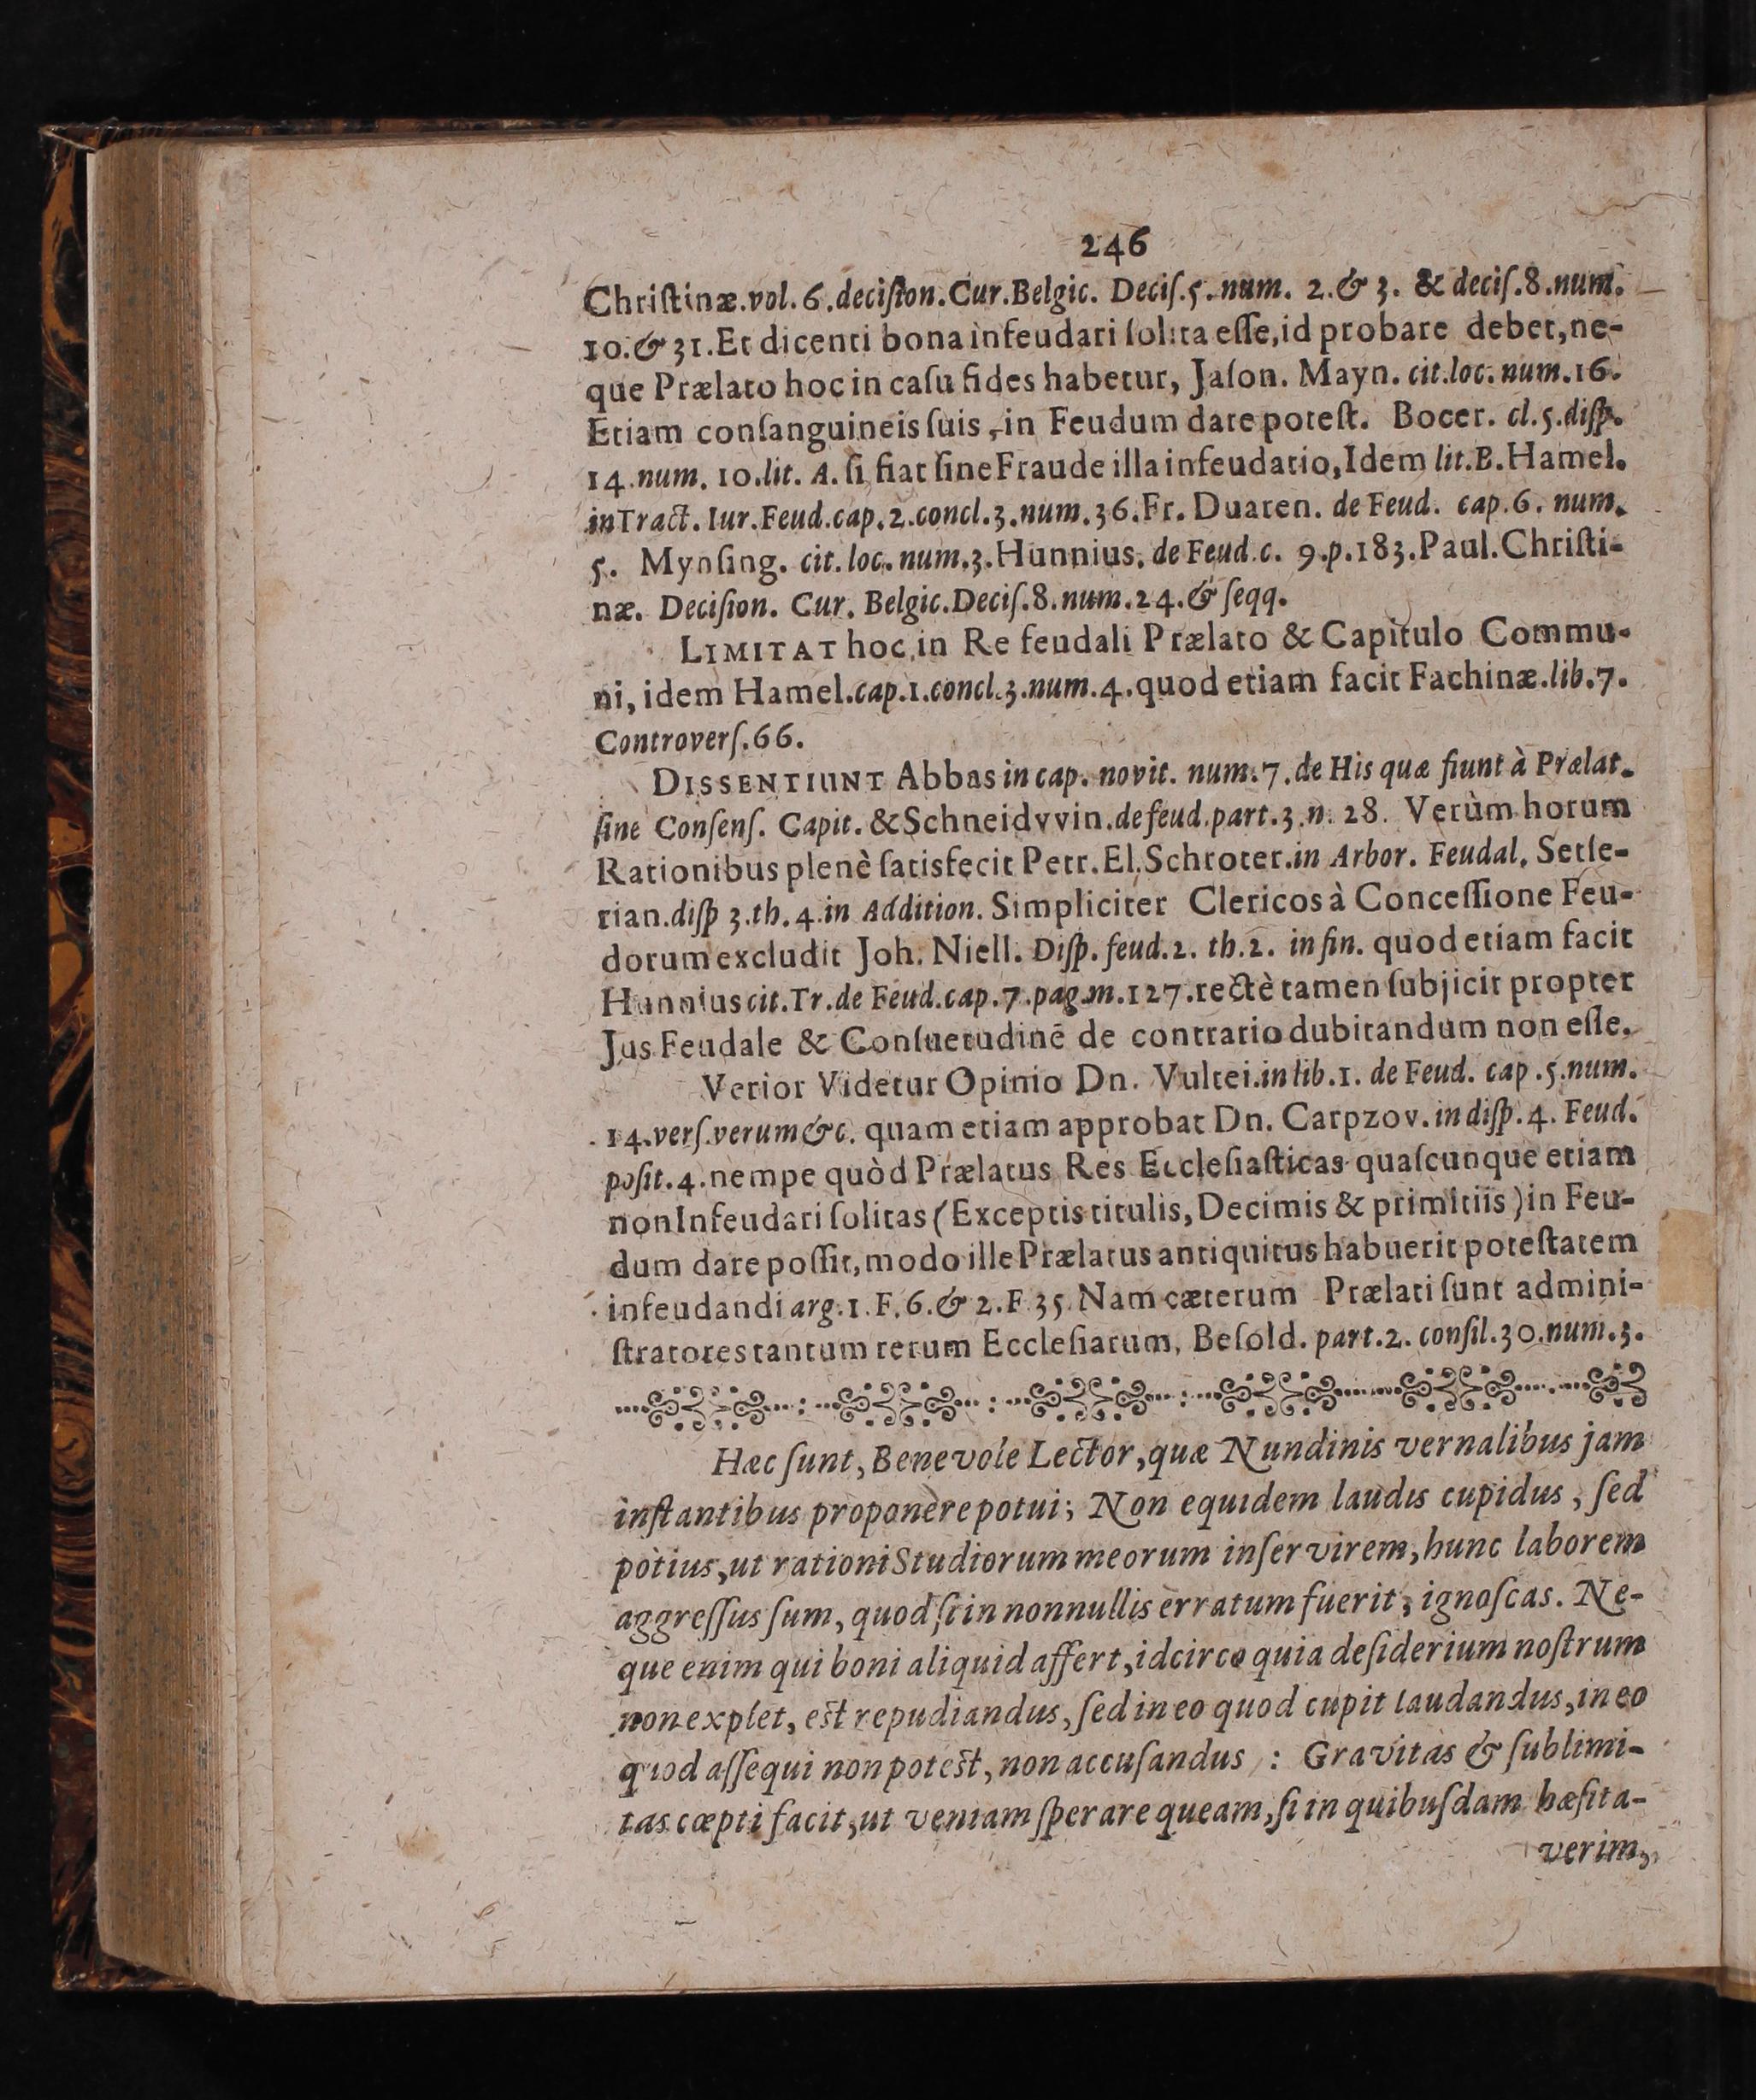 246
Chriſtinæ.vol.6.deciſion.Cur.Belgic. Deciſ.5.num. 2.& 3. & deciſ.8.num.
10.& 31.Et dicenti bona infeudari ſolita eſſe,id probare debet,ne-
que Prælato hoc in caſu fides habetur, Jaſon. Mayn. cit.loc.num.16.
Etiam conſanguineis ſuis, in Feudum dare poteſt. Bocer. cl.5.diſp.
14.num. 10.lit. A. ſi fiat ſine Fraude illa infeudatio,Idem lit.B.Hamel.
in Tract. Iur.Feud.cap.2.concl.3.num.36.Fr. Duaren. de Feud. cap.6. num.
5. Mynſing. cit. loc. num.3.Hunnius. de Feud.c. 9.p.183.Paul.Chriſti-
næ. Deciſion. Cur. Belgic.Deciſ.8.num.24.& ſeqq.
LIMITAT hoc in Re feudali Prælato & Capitulo Commu-
ni, idem Hamel.cap.1.concl.3.num.4.quod etiam facit Fachinæ.lib.7.
Controverſ.66.
DISSENTIUNT Abbas in cap. novit. num.7.de His quæ fiunt à Prælat.
ſine Conſenſ. Capit. & Schneidvvin.de feud.part.3.n. 28. Verùm horum
Rationibus plenè ſatisfecit Petr.El.Schroter.in Arbor. Feudal. Setſe-
rian.diſp 3.th.4.in Addition. Simpliciter Clericos à Conceſſione Feu-
dorum excludit Joh. Niell. Diſp. feud.2. th.2. in fin. quod etiam facit
Hunnius cit.Tr.de Feud.cap.7.pag.m.127.rectè tamen ſubjicit propter
Jus Feudale & Conſuetudinē de contrario dubitandum non eſſe.
Verior Videtur Opinio Dn. Vultei.in lib.1. de Feud. cap.5.num.
14.verſ.verum &c. quam etiam approbat Dn. Carpzov.in diſp.4. Feud.
poſit.4.nempe quòd Prælatus Res Eccleſiaſticas quaſcunque etiam
non Infeudari ſolitas (Exceptis titulis, Decimis & primitiis) in Feu-
dum dare poſſit, modo ille Prælatus antiquitus habuerit poteſtatem
infeudandi arg.1.F.6.& 2.F.35. Nam cæterum Prælati ſunt admini-
ſtratores tantum rerum Eccleſiarum, Beſold. part.2. conſil.30.num.3.
Hæc ſunt, Benevole Lector, quæ Nundinis vernalibus jam
inſtantibus proponere potui; Non equidem laudis cupidus, ſed
potius, ut rationi Studiorum meorum inſervirem, hunc laborem
aggreſſus ſum, quod ſi in nonnullis erratum fuerit, ignoſcas. Ne-
que enim qui boni aliquid affert, idcirco quia deſiderium noſtrum
non explet, eſt repudiandus, ſed in eo quod cupit laudandus, in eo
quod aſſequi non poteſt, non accuſandus : Gravitas & ſublimi-
tas cœpti facit, ut veniam ſperare queam, ſi in quibuſdam hæſita-
verim,